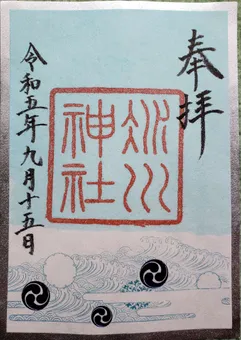 奉拝
氷川
神社
令和五年九月十五日